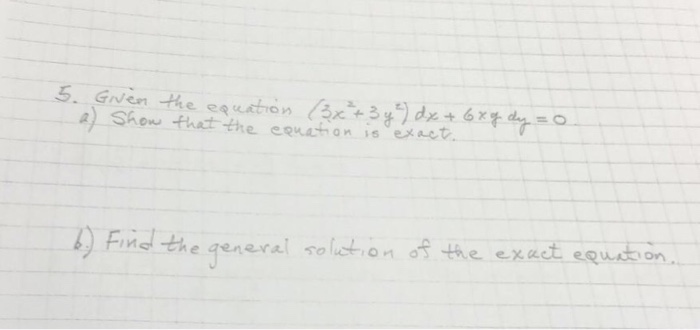 5. Given the equation (3x²+3y²) dx + 6xy dy = 0
a) Show that the equation is exact.
b.) Find the general solution of the exact equation.